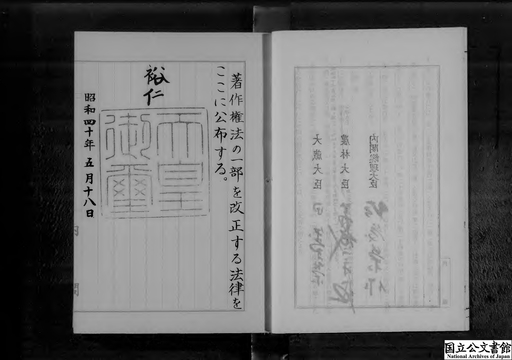 著作権法の一部を改正する法律を
ここに公布する。
裕仁
天皇
御璽
昭和四十年五月十八日
内閣総理大臣
農林大臣
大蔵大臣 田中
国立公文書館
National Archives of Japan